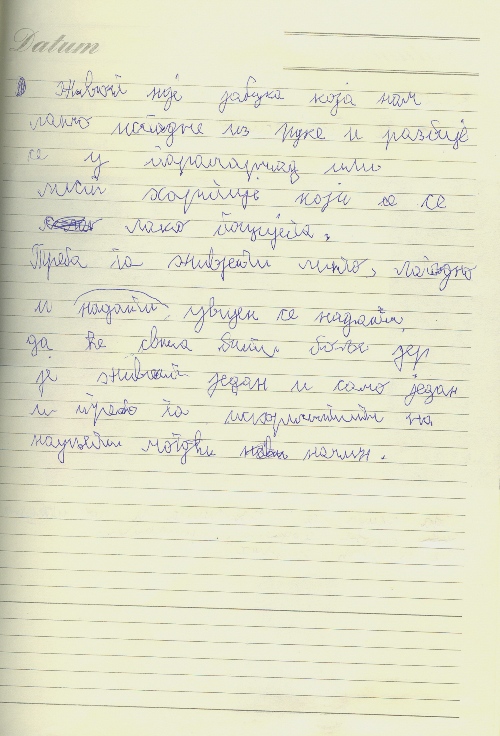 Datum
Живот није јабука која нам
лако испадне из руке и разбије
се у парампарчад или
лист хартије који се
лако поцијепа.
Треба га живјети лијепо, лагодно
и надати увијек се надати,
да ће свима бити боље јер
је живот један и само један
и треба га искористити на
најљепши могући начин.